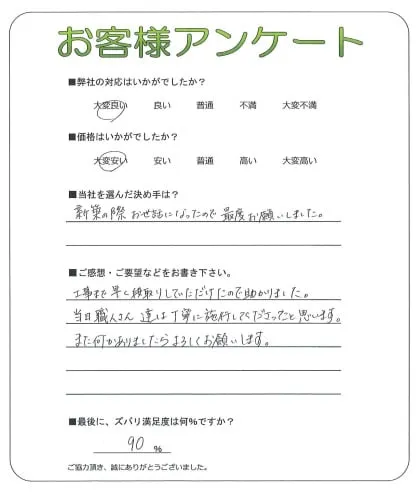 お客様アンケート
■弊社の対応はいかがでしたか?
大変良い 良い 普通 不満 大変不満
■価格はいかがでしたか?
大変安い 安い 普通 高い 大変高い
■当社を選んだ決め手は?
新築の際お世話になったので最度お願いしました。
■ご感想・ご要望などをお書き下さい。
工事まで早く段取りしていただけたので助かりました。
当日職人さん達は丁寧に施行してくださったと思います。
また何かありましたらよろしくお願いします。
■最後に、ズバリ満足度は何%ですか?
90 %
ご協力頂き、誠にありがとうございました。